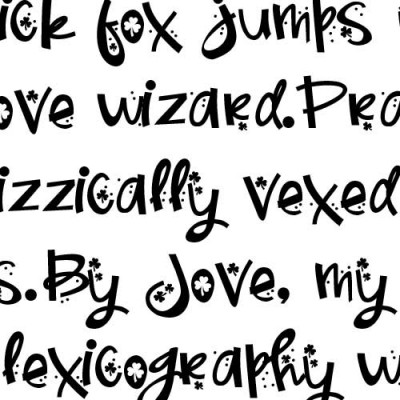 ick fox jumps
ove wizard.Pra
izzically vexed
s.By Jove, my
lexicography w